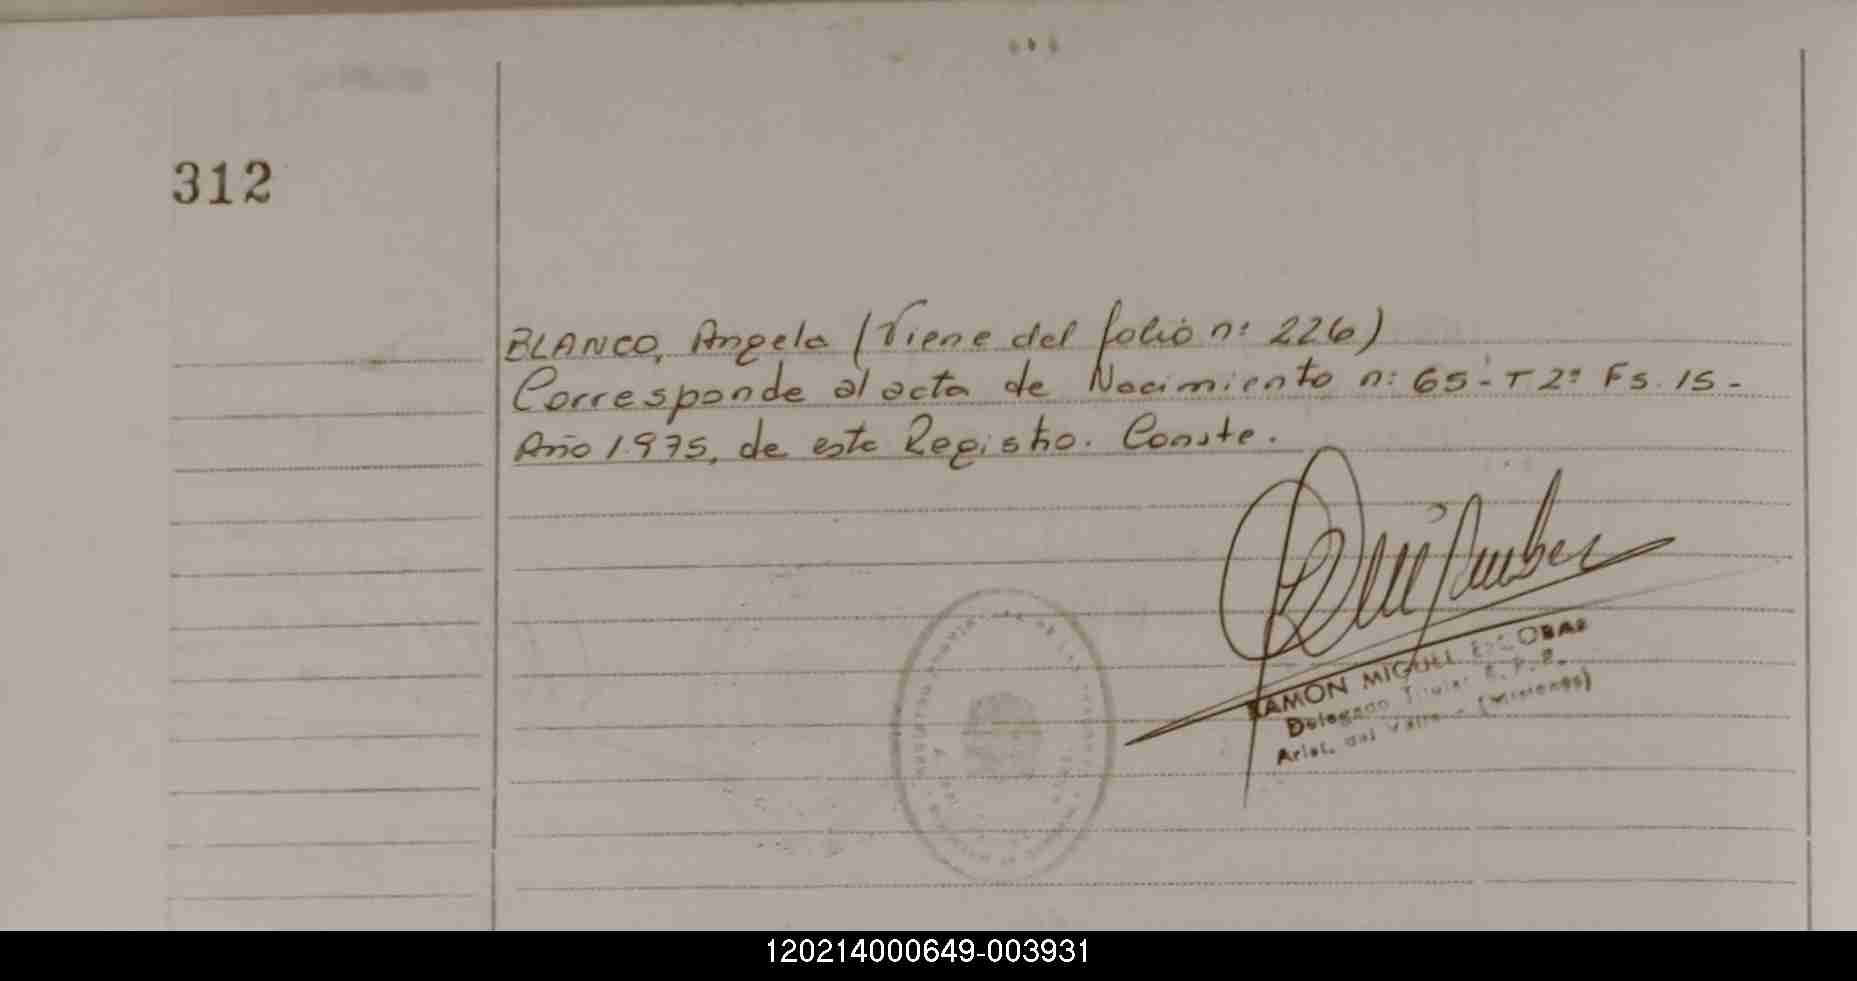 312
BLANCO, Angela (Viene del folio n: 226)
Corresponde al acta de Nacimiento n: 65 - T 2º Fs. 15 -
Año 1.975, de este Registro. Conste.
RAMON MIGUEL ESCOBAR
Delegado Titular R. P. P.
Arist. del Valle - (Misiones)
120214000649-003931